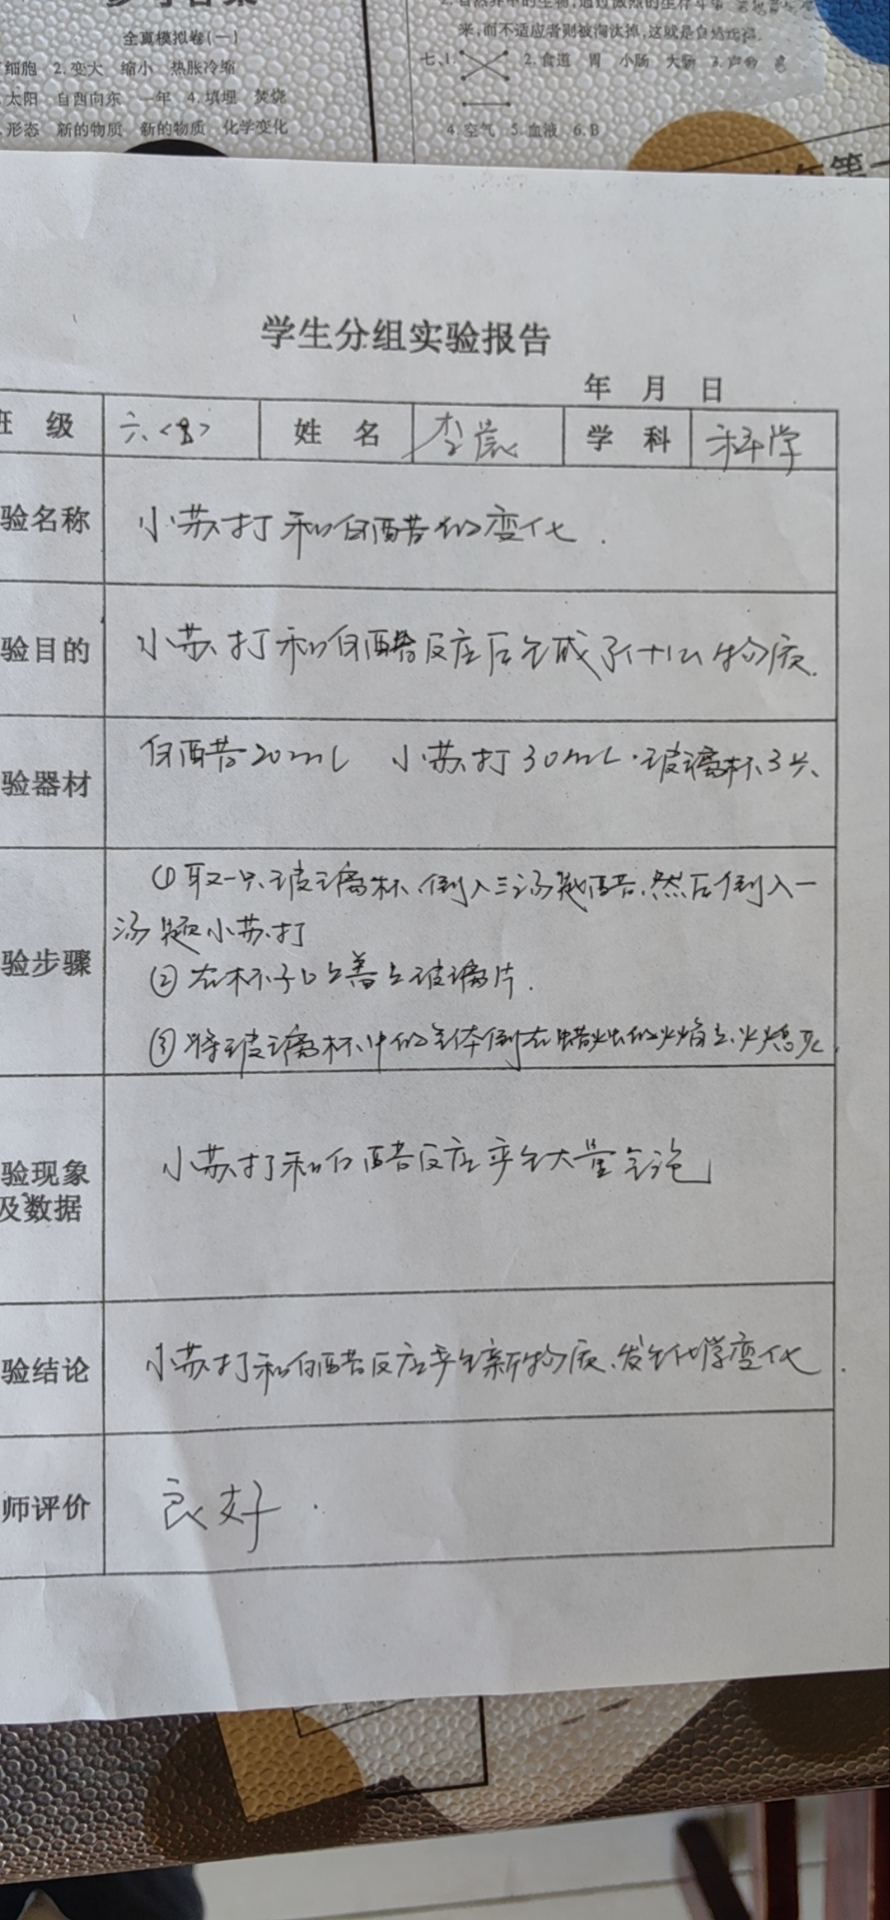 全真模拟卷(一)
细胞 2.变大 缩小 热胀冷缩
太阳 自西向东 一年 4.填埋 焚烧
形态 新的物质 新的物质 化学变化
来,而不适应者则被淘汰掉,这就是自然选择。
七、1. 2.食道 胃 小肠 大肠 3.声
4.空气 5.血液 6.B
学生分组实验报告
年 月 日
班 级 六、 姓 名 李 学 科 科学
验名称 小苏打和白醋的变化.
验目的 小苏打和白醋反应后生成了什么物质.
验器材 白醋20mL 小苏打30mL.玻璃杯3只、
验步骤 ①取一只玻璃杯.倒入三汤匙醋.然后倒入一
汤匙小苏打
②在杯子口上盖上玻璃片.
③将玻璃杯中的气体倒在蜡烛的火焰上.火熄灭.
验现象
及数据 小苏打和白醋反应产生大量气泡
验结论 小苏打和白醋反应产生新物质、发生化学变化.
师评价 良好.